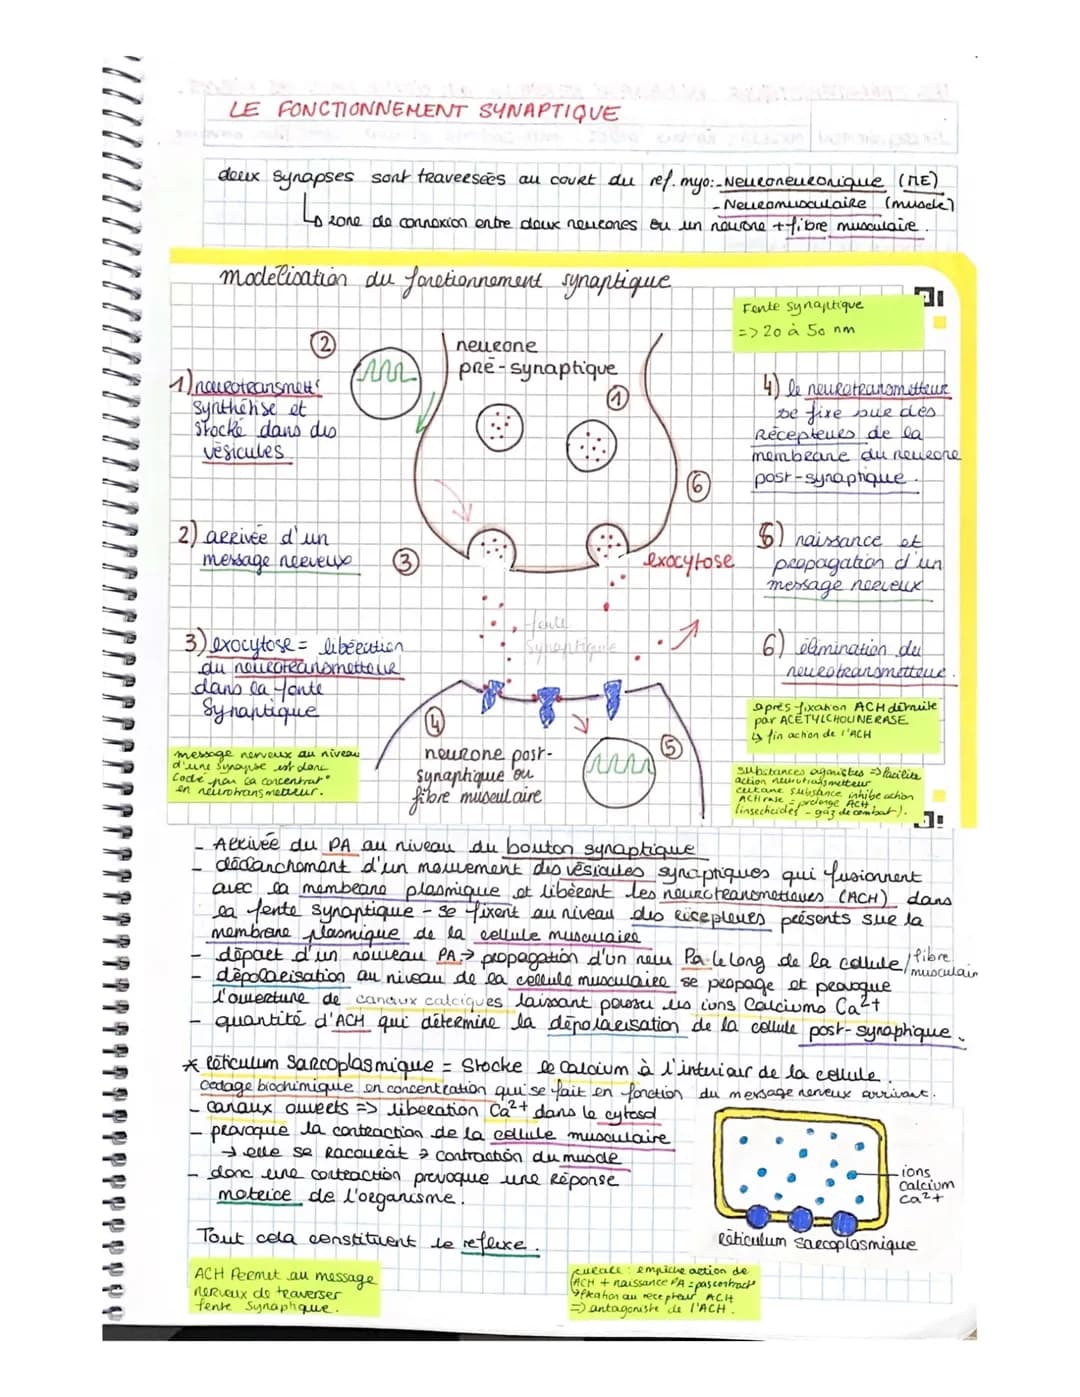 LE FONCTIONNEMENT SYNAPTIQUE
deux synapses sont traversées au court du ref. myo: - Neuroneuronique (ME)
- Neuromusculaire (muscle)
↳ zone de connexion entre deux neurones ou un neurone + fibre musculaire.
modélisation du fonctionnement synaptique
Fente synaptique
=> 20 à 50 nm
1) neurotransmett^r
synthétisé et
stocké dans des
vésicules
2) arrivée d'un
message nerveux
3) exocytose = libération
du neurotransmetteur
dans la fente
Synaptique
message nerveux au niveau
d'une synapse est donc
codé par la concentrat°
en neurotransmetteur.
2
neurone
pré-synaptique
1
6
3
exocytose
fente
synaptique
4
neurone post-
synaptique ou
fibre musculaire
5
4) le neurotransmetteur
se fixe sur des
Récepteurs de la
membrane du neurone
post-synaptique.
5) naissance et
propagation d'un
message nerveux
6) élimination du
neurotransmetteur.
après fixation ACH détruite
par ACETYLCHOLINERASE
↳ fin action de l'ACH
substances agonistes => facilite
action neurotransmetteur
certaine substance inhibe action
ACHrase = prolonge ACH
(insecticides - gaz de combat).
- Arrivée du PA au niveau du bouton synaptique
- déclanchement d'un mouvement des vésicules synaptiques qui fusionnent
avec la membrane plasmique et libèrent les neurotransmetteurs (ACH) dans
la fente synaptique - se fixent au niveau des récepteurs présents sur la
membrane plasmique de la cellule musculaire
- départ d'un nouveau PA → propagation d'un nouv PA le long de la cellule / fibre
musculair
- dépolarisation au niveau de la cellule musculaire se propage et provoque
l'ouverture de canaux calciques laissant passer les ions Calciums Ca2+
- quantité d'ACH qui détermine la dépolarisation de la cellule post-synaptique.
* réticulum Sarcoplasmique = Stocke le calcium à l'intérieur de la cellule.
codage biochimique en concentration qui se fait en fonction du message nerveux arrivant.
- canaux ouverts => liberation Ca2+ dans le cytosol
- provoque la contraction de la cellule musculaire
→ elle se racourcit → contraction du muscle
- donc une contraction provoque une réponse
motrice de l'organisme.
ions
calcium
Ca2+
Réticulum sarcoplasmique
Tout cela constituent le reflexe.
ACH Permet au message
nerveux de traverser
fente Synaptique.
curare : empêche action de
ACH + naissance PA = pas contract°
↳ fixation au récepteur ACH
=> antagoniste de l'ACH.